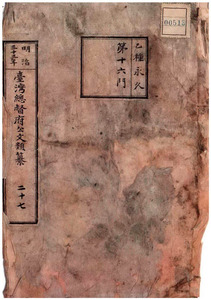 乙種永久
第十六門
明治
臺灣總督府公文類纂
二十七